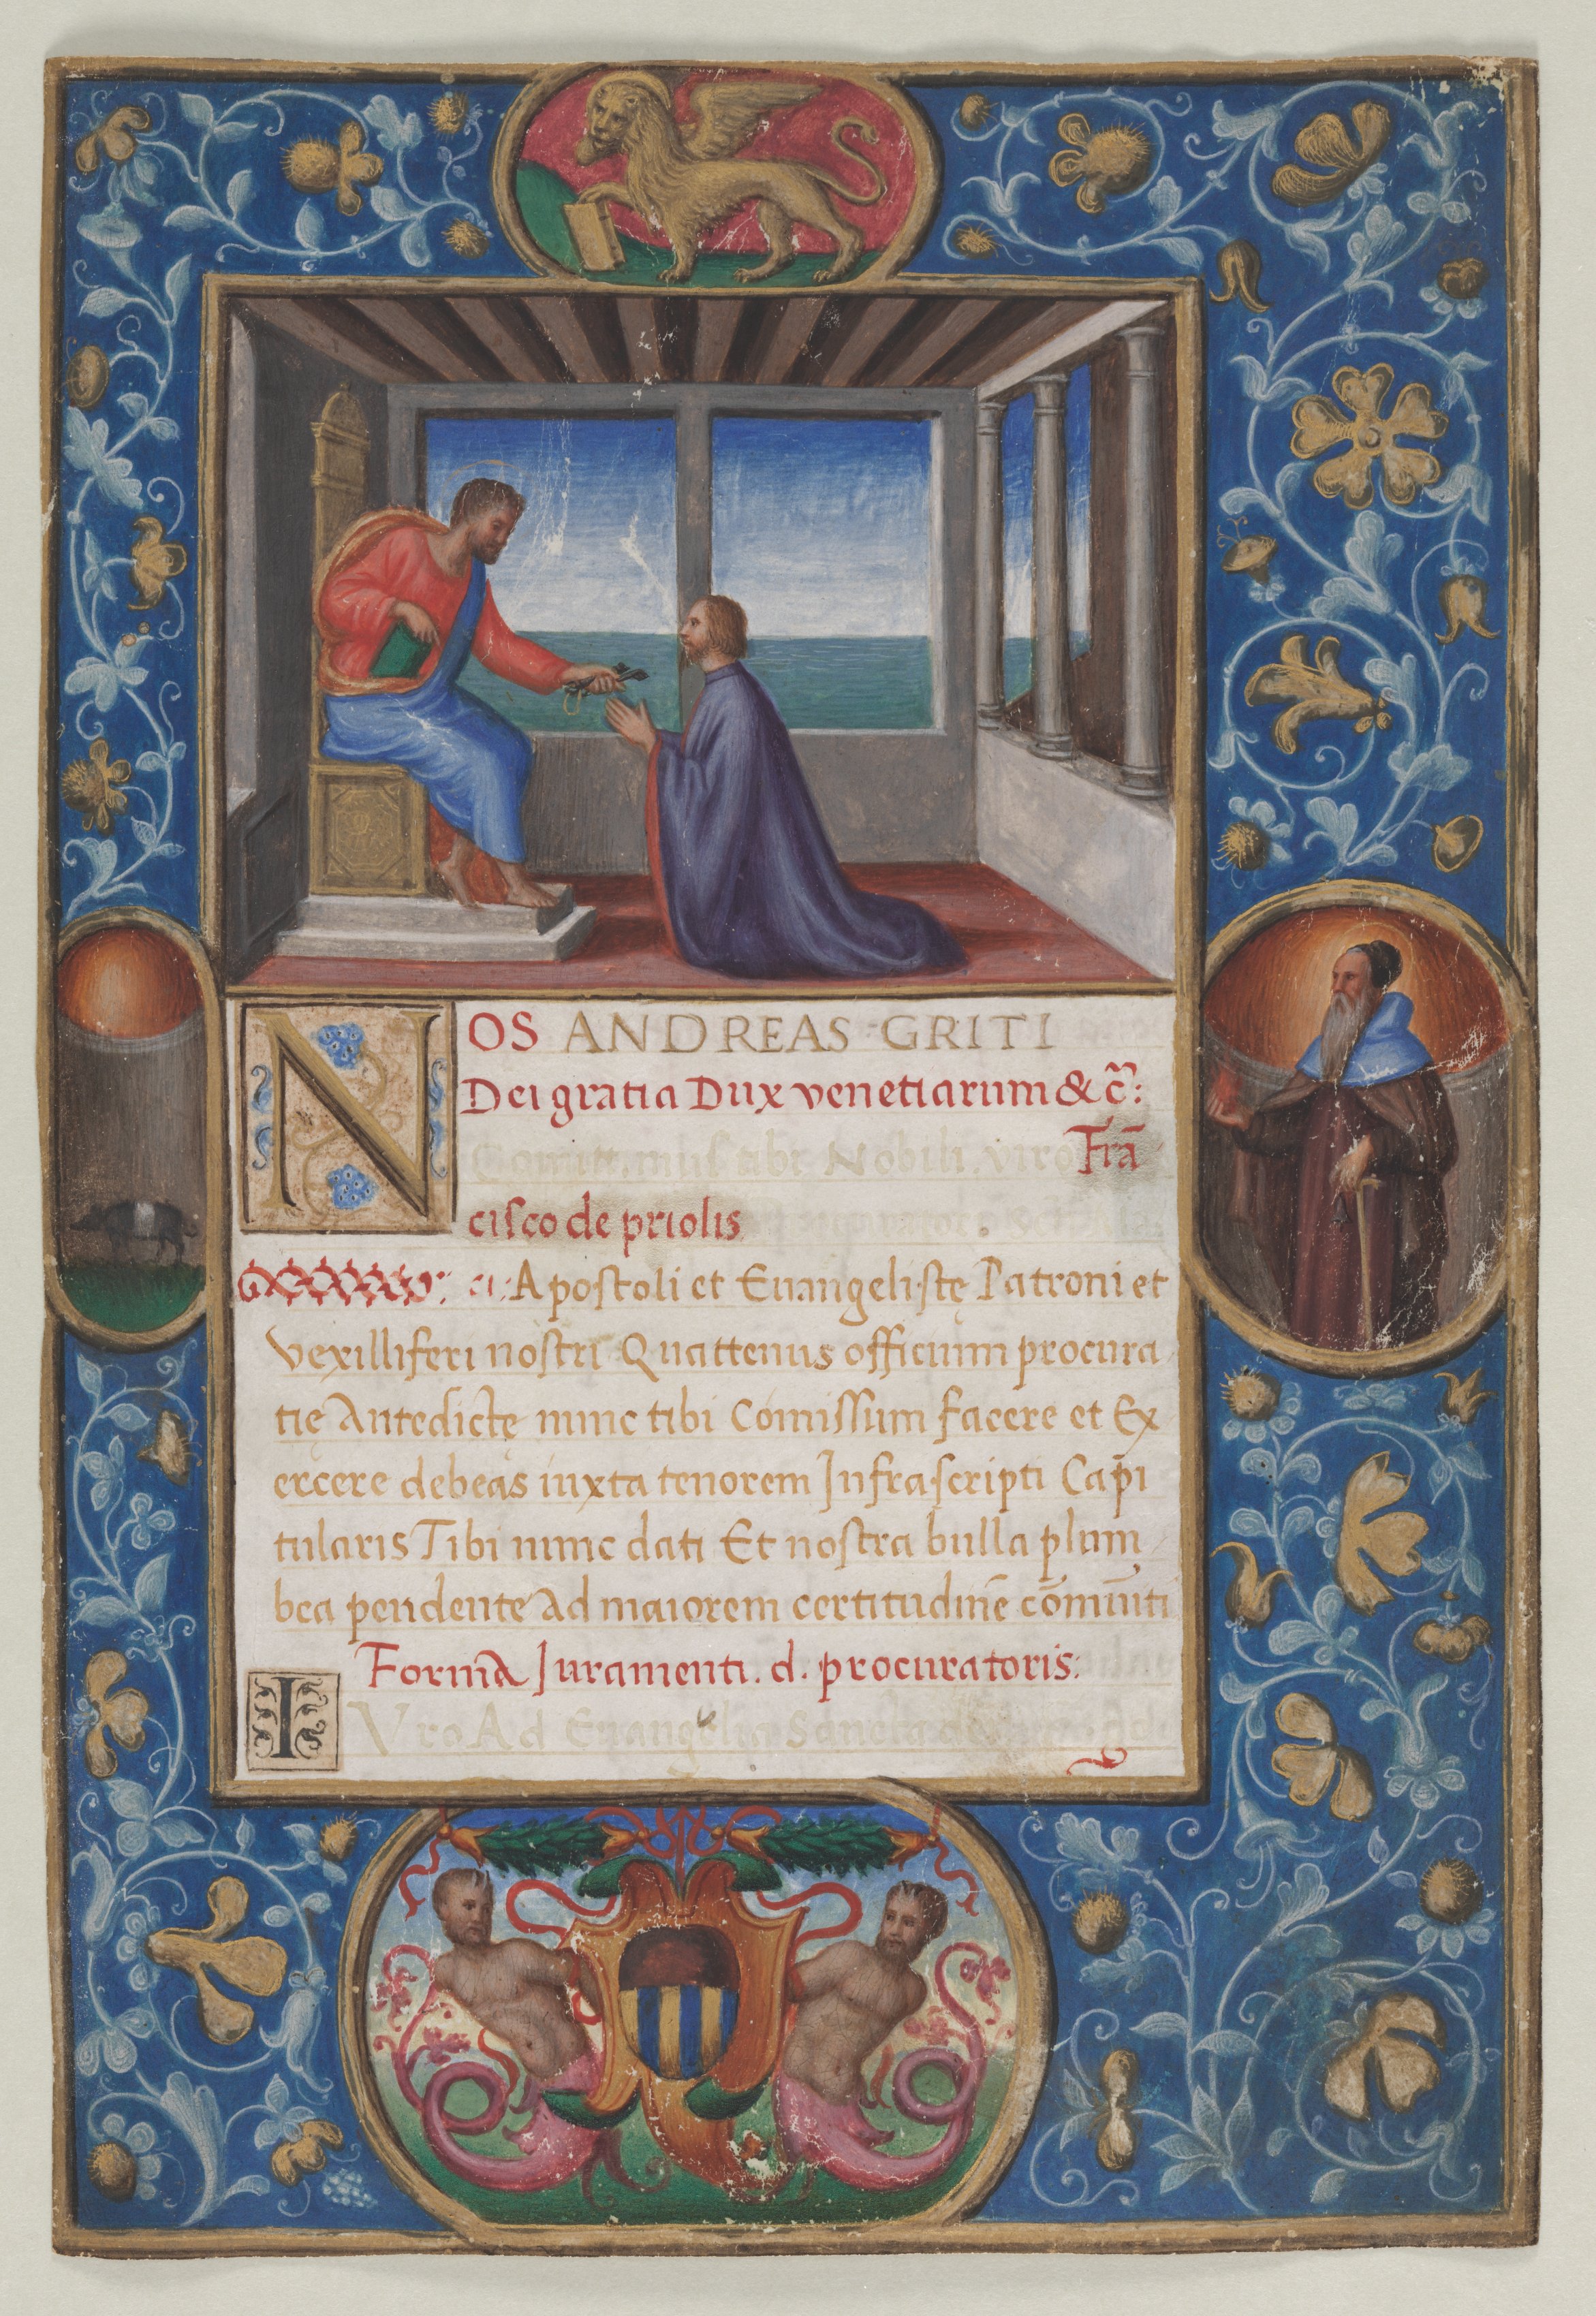 NOS ANDREAS GRITI
Dei gratia Dux venetiarum & c̃:
Comittimus tibi Nobili viro Frã
cisco de priolis
Apostoli et Euangelistę Patroni et
vexilliferi nostri Quattenus officium procura
tię Antedictę nunc tibi Comissum facere et Ex
ercere debeas iuxta tenorem Infrascripti Capi
tularis Tibi nunc dati Et nostra bulla plum
bea pendente Ad maiorem certitudinẽ
Forma Juramenti. d. procuratoris:
IVro Ad Euangelia Sancta